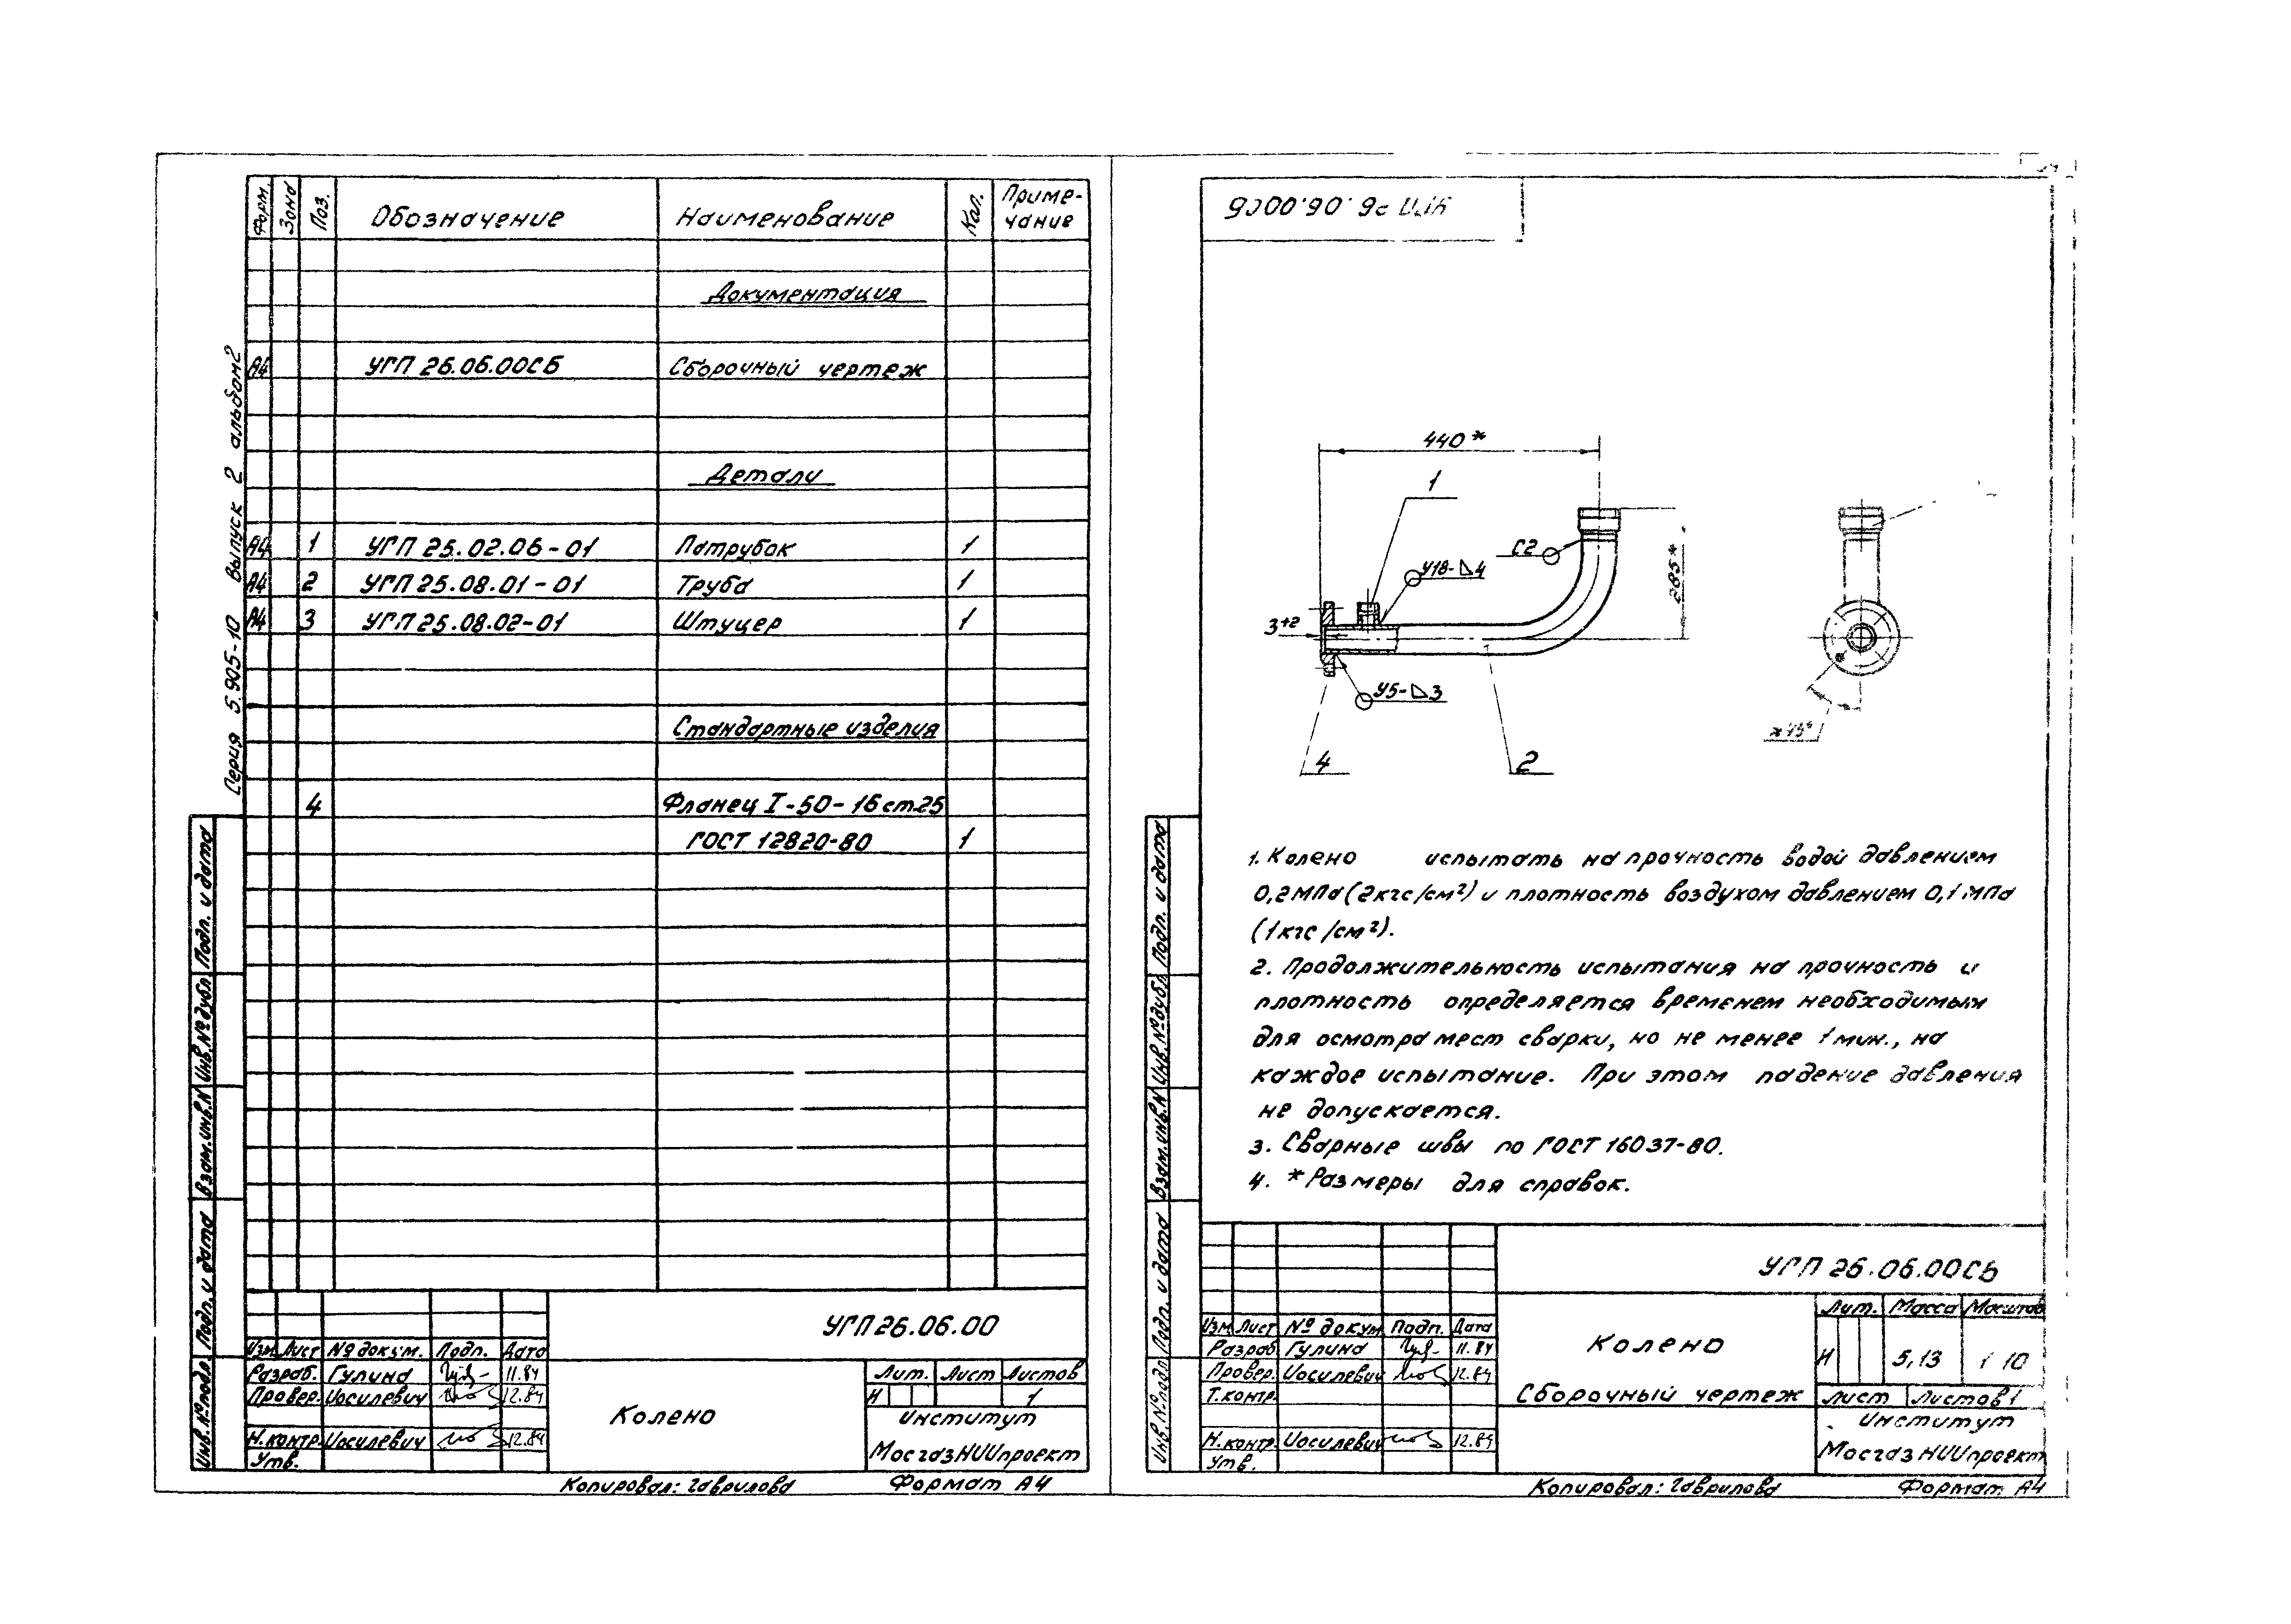 Серия 5.905-10 выпуск 2 альбом2
Форм. Зона Поз. Обозначение Наименование Кол. Приме-
чание
Документация
А4 УГП 26.06.00СБ Сборочный чертеж
Детали
А4 1 УГП 25.02.06-01 Патрубок 1
А4 2 УГП 25.08.01-01 Труба 1
А4 3 УГП 25.08.02-01 Штуцер 1
Стандартные изделия
4 Фланец I-50-16ст.25
ГОСТ 12820-80 1
Подп. и дата
Инв.№дубл.
Взам.инв.№
Подп. и дата
Инв.№подл.
УГП 26.06.00
Изм Лист № докум. Подп. Дата
Разраб. Гулина 11.84
Провер. Иосилевич 12.84
Н.контр. Иосилевич 12.84
Утв.
Колено
Лит. Лист Листов
И 1
Институт
МосгазНИИпроект
Копировал: Гаврилова Формат А4
УГП 26.06.00СБ
440*
1
С2
У18-⊿4
285*
3+2
У5-⊿3
4
2
*45°
1. Колено испытать на прочность водой давлением
0,2МПа (2кгс/см²) и плотность воздухом давлением 0,1МПа
(1кгс/см²).
2. Продолжительность испытания на прочность и
плотность определяется временем необходимым
для осмотра мест сварки, но не менее 1мин., на
каждое испытание. При этом падение давления
не допускается.
3. Сварные швы по ГОСТ 16037-80.
4. *Размеры для справок.
Подп. и дата
Инв.№дубл.
Взам.инв.№
Подп. и дата
Инв.№подл.
УГП 26.06.00СБ
Изм Лист № докум Подп. Дата
Разраб. Гулина 11.84
Провер. Иосилевич 12.84
Т.контр.
Н.контр. Иосилевич 12.84
Утв.
Колено
Сборочный чертеж
Лит. Масса Масштаб
И 5,13 1 10
Лист Листов 1
Институт
МосгазНИИпроект
Копировал: Гаврилова Формат А4